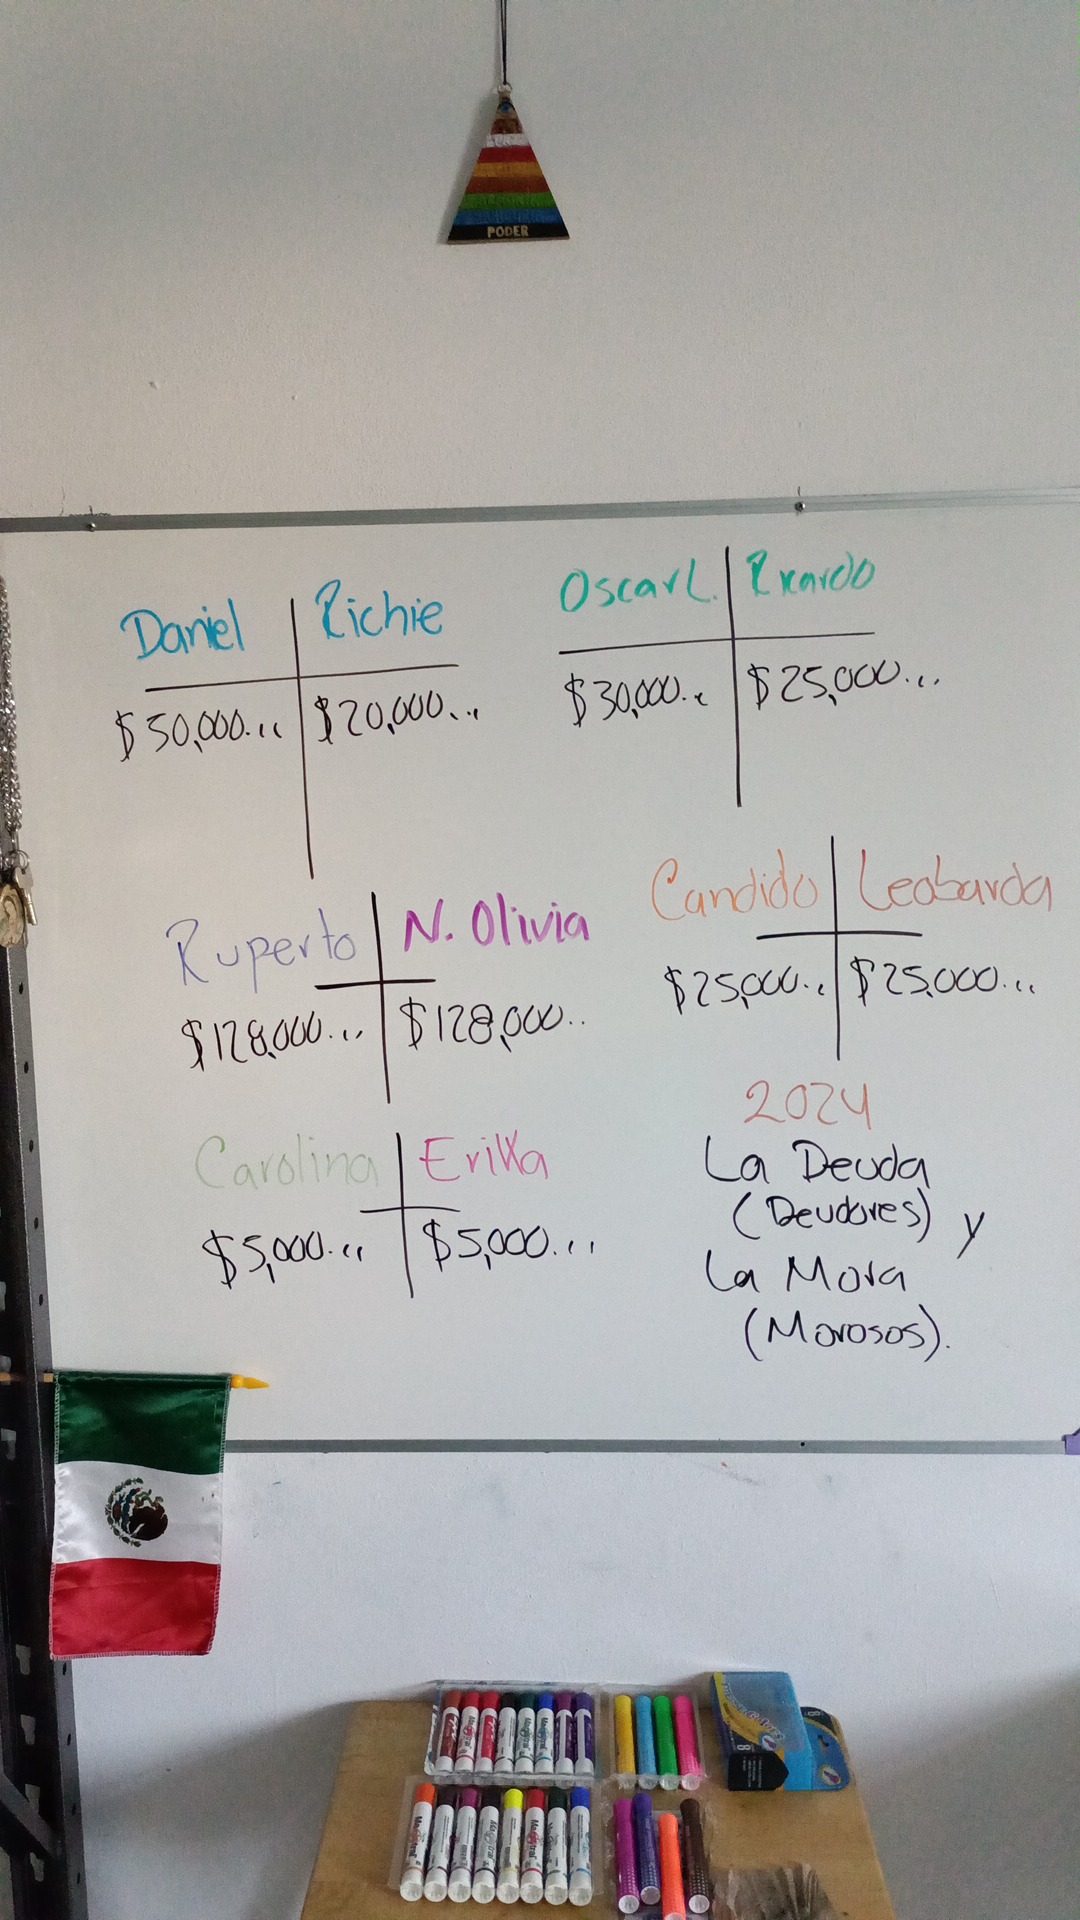 PODER
Daniel Richie
$50,000... $20,000...
Oscar L. Ricardo
$30,000... $25,000...
Ruperto N. Olivia
$128,000... $128,000..
Candido Leobarda
$25,000... $25,000...
Carolina Erika
$5,000... $5,000...
2024
La Deuda
(Deudores) y
La Mora
(Morosos).